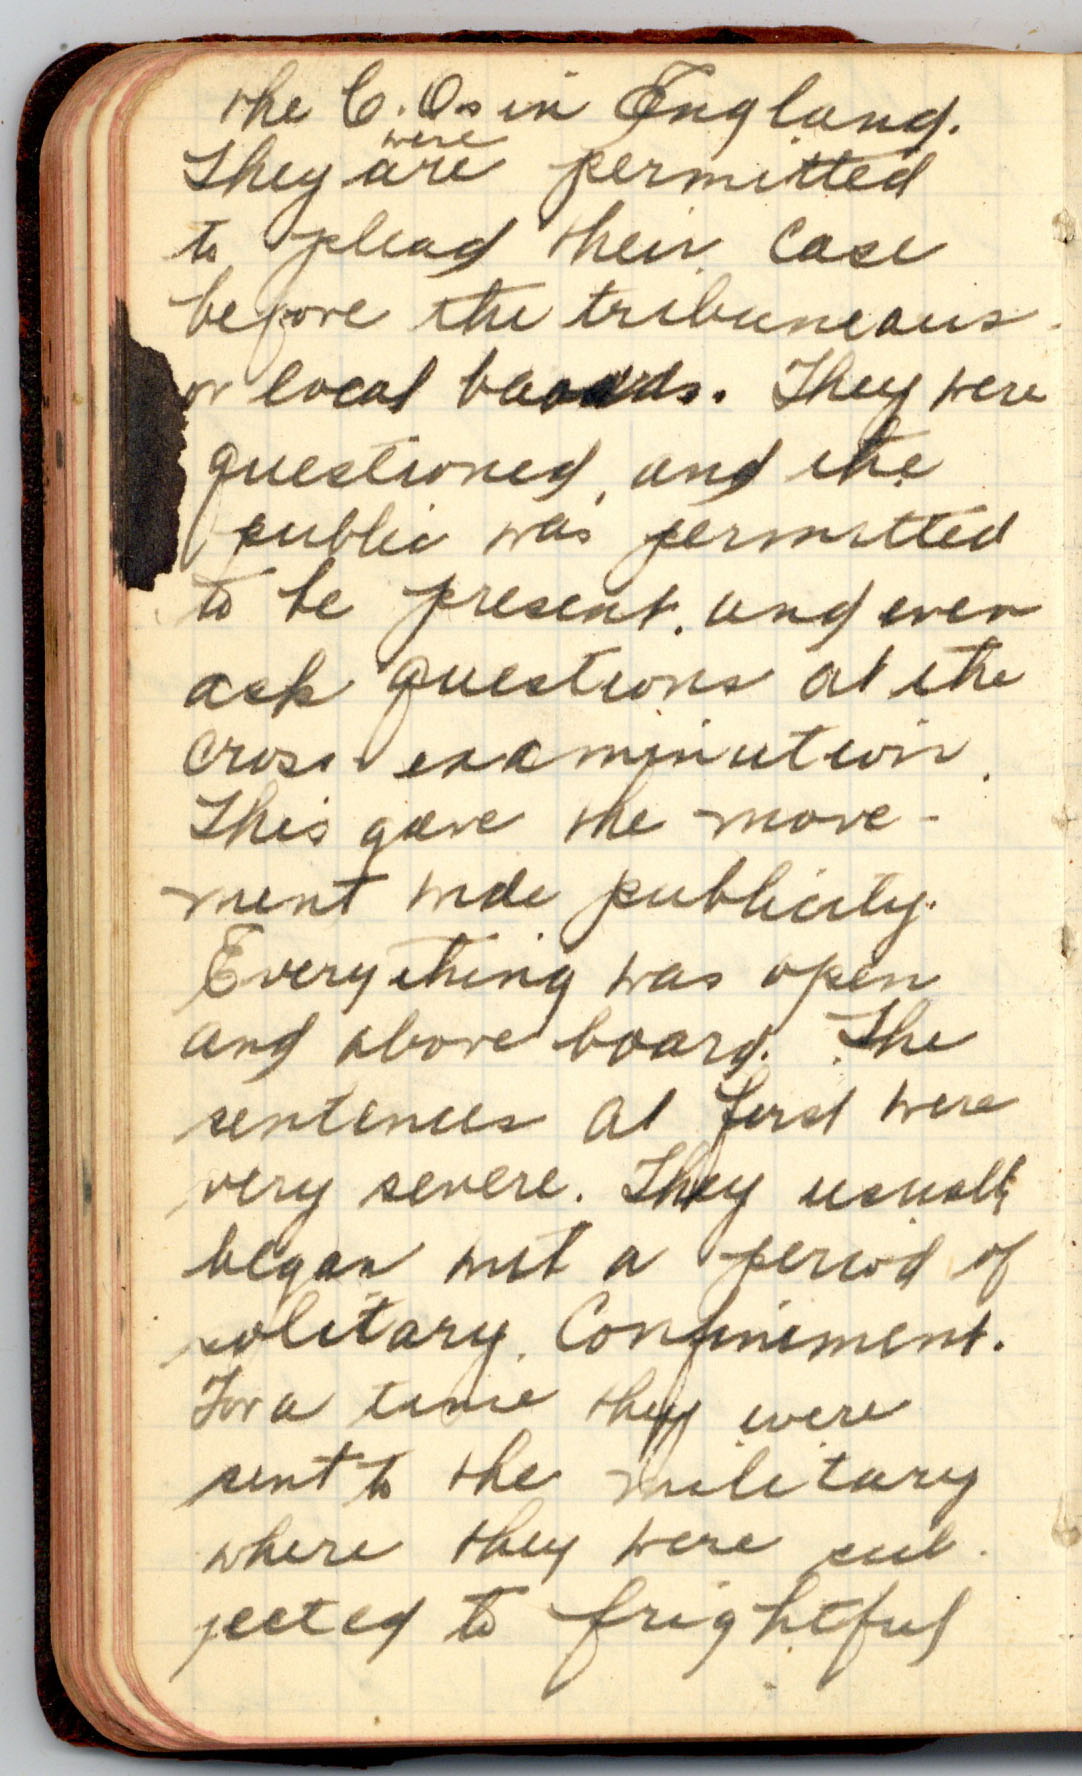 the C.Os in England.
were
They are permitted
to plead their case
before the tribuneaus
or local boards. They were
questioned, and the
public was permitted
to be present, and even
ask questions at the
cross examination.
This gave the move-
ment wide publicity.
Everything was open
and above board. The
sentences at first were
very severe. They usually
began with a period of
solitary confinement.
For a time they were
sent to the military
where they were sub-
jected to frightful